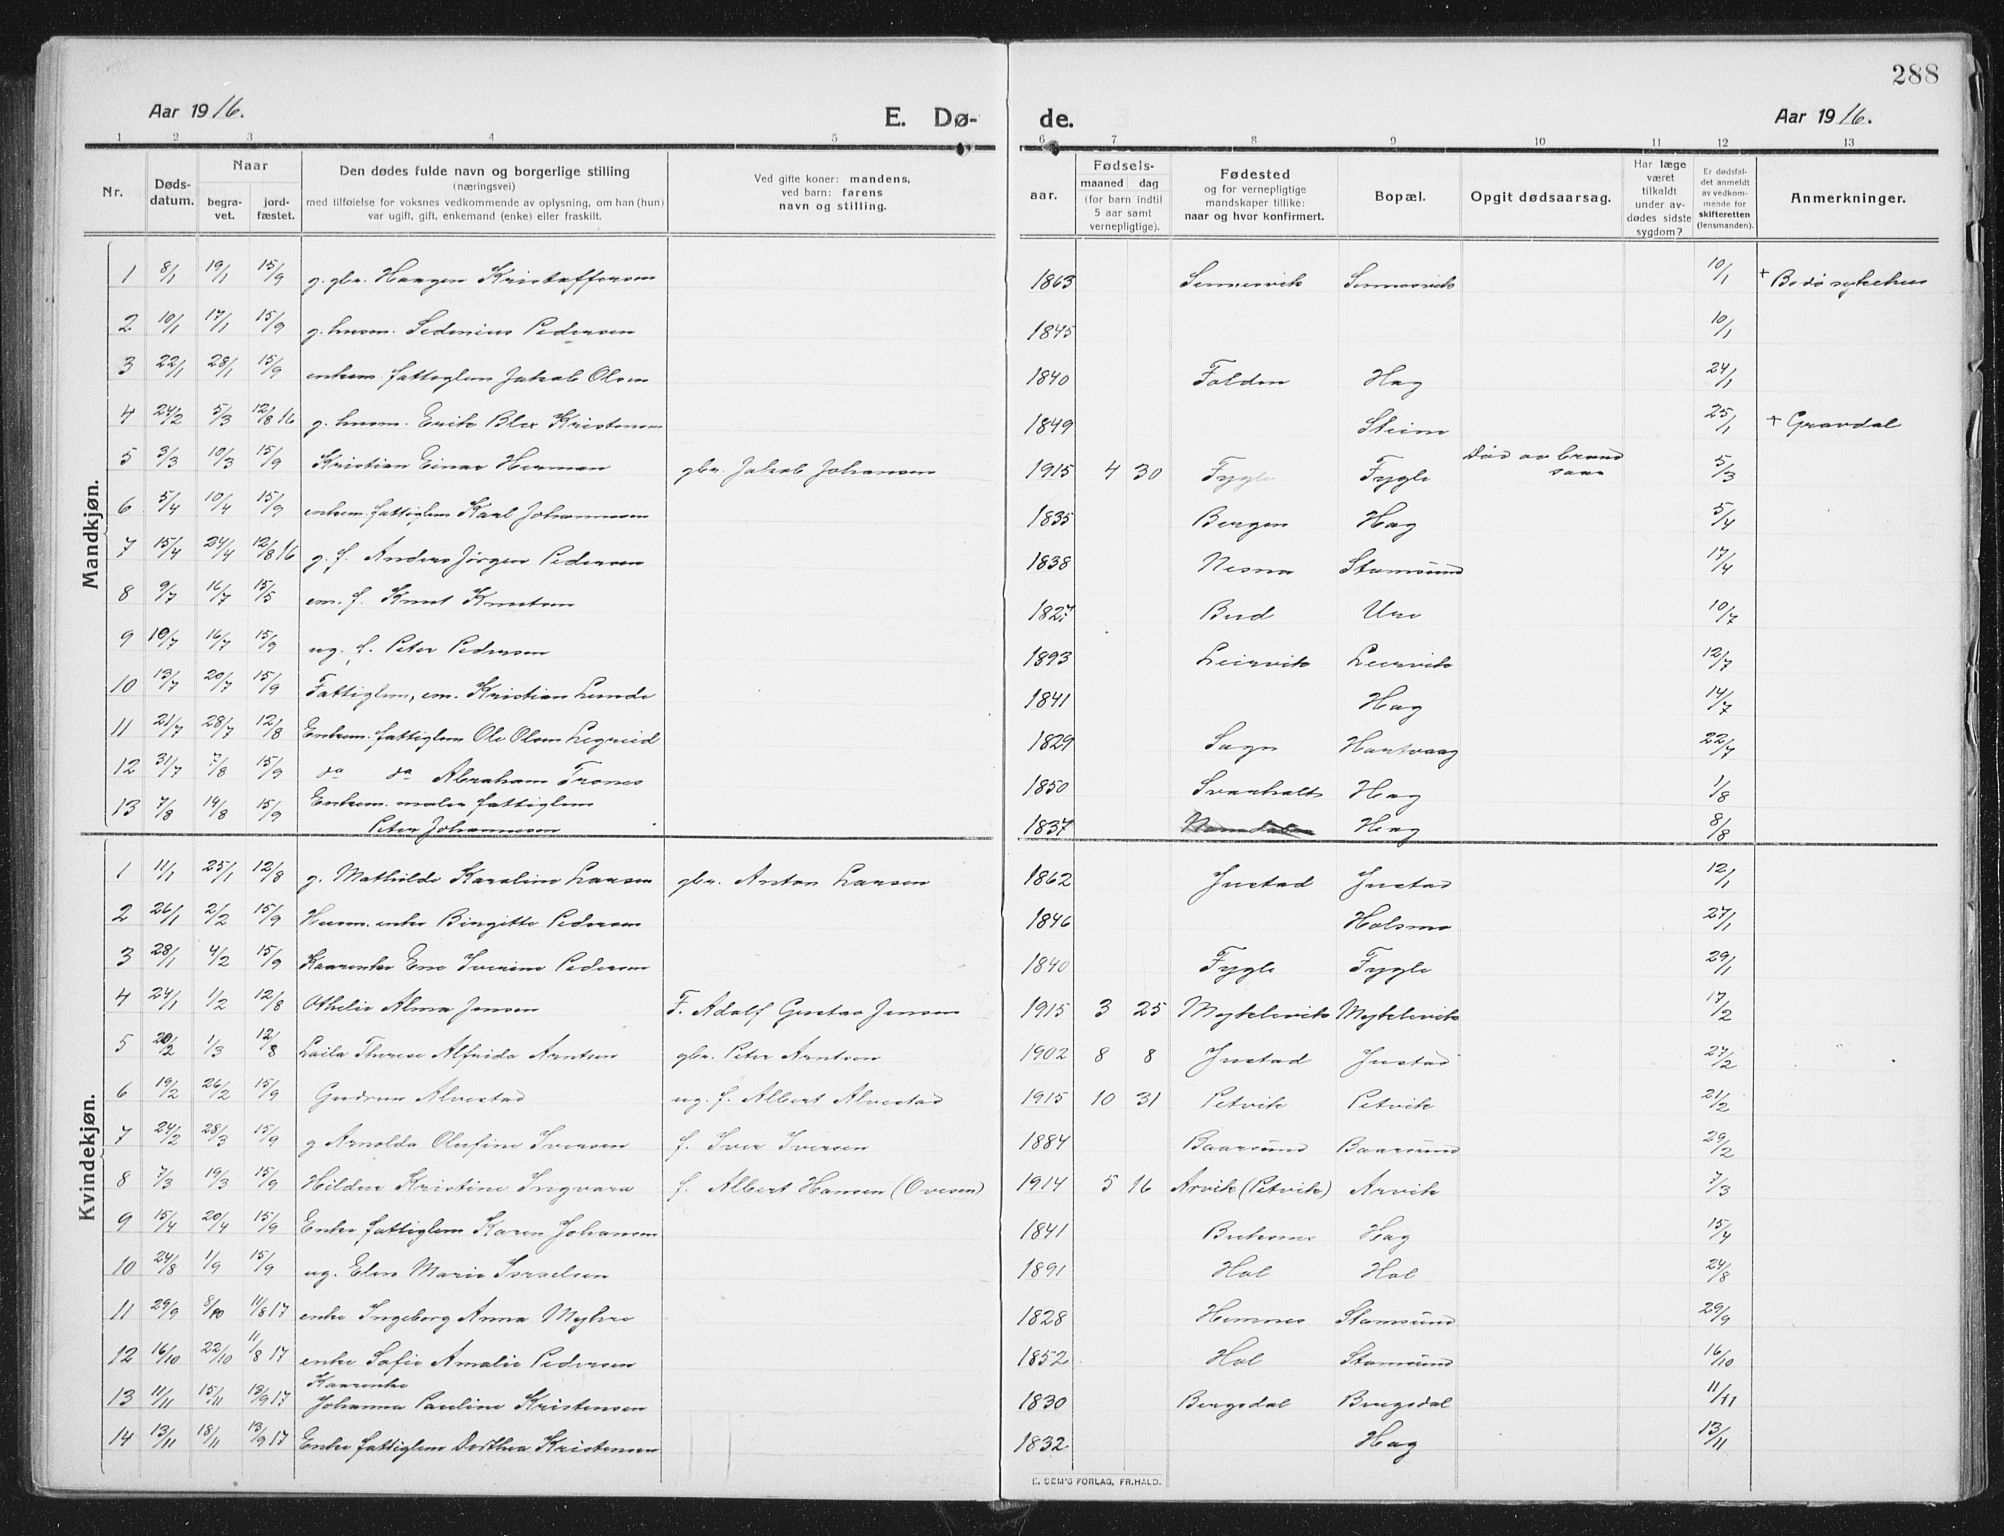 288
Aar 1916.
E. Dø-
de.
Aar 1916.
1 2 3 4 5 6 7 8 9 10 11 12 13
Nr.
Døds-
datum.
Naar
begra-
vet.
jord-
fæstet.
Den dødes fulde navn og borgerlige stilling
(næringsvei)
med tilføielse for voksnes vedkommende av oplysning, om han (hun)
var ugift, gift, enkemand (enke) eller fraskilt.
Ved gifte koner: mandens,
ved barn: farens
navn og stilling.
aar.
Fødsels-
maaned dag
(for barn indtil
5 aar samt
vernepligtige).
Fødested
og for vernepligtige
mandskaper tillike:
naar og hvor konfirmert.
Bopæl.
Opgit dødsaarsag.
Har læge
været
tilkaldt
under av-
dødes sidste
sygdom?
Er dødsfal-
det anmeldt
av vedkom-
mende for
skifteretten
(lensmanden).
Anmerkninger.
Mandkjøn.
1 8/1 19/1 15/9 g. gbr. Haagen Kristoffersen 1863 Sennesvik Sennesvik 10/1 + Bodø sykehus
2 10/1 17/1 15/9 g. husm. Sedenius Pedersen 1845 10/1
3 22/1 28/1 15/9 enkem. fattiglem Jakob Olsen 1840 Folden Hag 24/1
4 24/2 5/3 12/8 16 g. husm. Erik Blix Kristensen 1849 Steine 25/1 + Gravdal
5 3/3 10/3 15/9 Kristian Einar Herman gbr. Jakob Johansen 1915 4 30 Fygle Fygle Død av brand
saar 5/3
6 5/4 10/4 15/9 enkem. fattiglem Karl Johannesen 1835 Bergen Hag 5/4
7 15/4 24/4 12/8 16 g. f. Anders Jørgen Pedersen 1838 Nesna Stamsund 17/4
8 9/7 16/7 15/5 em. f. Knut Knutsen 1827 Bud Ure 10/7
9 10/7 16/7 15/9 ug. f. Peter Pedersen 1893 Leirvik Leirvik 12/7
10 13/7 20/7 15/9 Fattiglem, em. Kristian Lunde 1841 Hag 14/7
11 21/7 28/7 12/8 Enkem. fattiglem Ole Olsen Legreid 1829 Sogn Hartvaag 22/7
12 31/7 7/8 15/9 do do Abraham Trones 1850 Svarholt Hag 1/8
13 7/8 19/8 15/9 Enkem. maler fattiglem
Peter Johannesen 1837 Namdalen Hag 8/8
Kvindekjøn.
1 11/1 25/1 12/8 g. Mathilde Karoline Larsen gbr. Anton Larsen 1862 Justad Justad 12/1
2 26/1 2/2 15/9 Husm. enke Birgitte Pedersen 1846 Holsmo 27/1
3 28/1 4/2 15/9 Kaarenke Ene Iverine Pedersen 1840 Fygle Fygle 29/1
4 24/1 1/2 12/8 Othelie Alma Jensen F. Adolf Gustav Jensen 1915 3 25 Myklevik Myklevik 17/2
5 20/2 1/3 12/8 Laila Therese Alfrida Arntsen gbr. Peter Arntsen 1902 8 8 Justad Justad 27/2
6 19/2 26/2 15/9 Gudrun Alvestad ug. f. Albert Alvestad 1915 10 31 Petvik Petvik 21/2
7 24/2 28/3 15/9 g Arnolda Olufine Iversen f. Iver Iversen 1884 Baarsund Baarsund 29/2
8 7/3 19/3 15/9 Hildur Kristine Ingvara f. Albert Hansen (Ovesen) 1914 5 16 Arvik (Petvik) Arvik 7/3
9 15/4 20/4 15/9 Enke fattiglem Karen Johansen 1841 Hag 15/4
10 24/8 1/9 15/9 ug. Elen Marie Israelsen 1891 Hol Hol 24/8
11 29/9 8/10 11/8 17 enke Ingeborg Anna Myhre 1828 Hemnes Stamsund 29/9
12 16/10 22/10 11/8 17 enke Sofie Amalie Pedersen 1852 Hol Stamsund 16/10
13 11/11 15/11 13/9 17 Kaarenke
Johanna Pauline Kristensen 1830 Bergsdal Bergsdal 11/11
14 13/11 18/11 13/9 17 Enke fattiglem Dorthea Kristensen 1832 Hag 13/11
E. SEM'S FORLAG, FR.HALD.